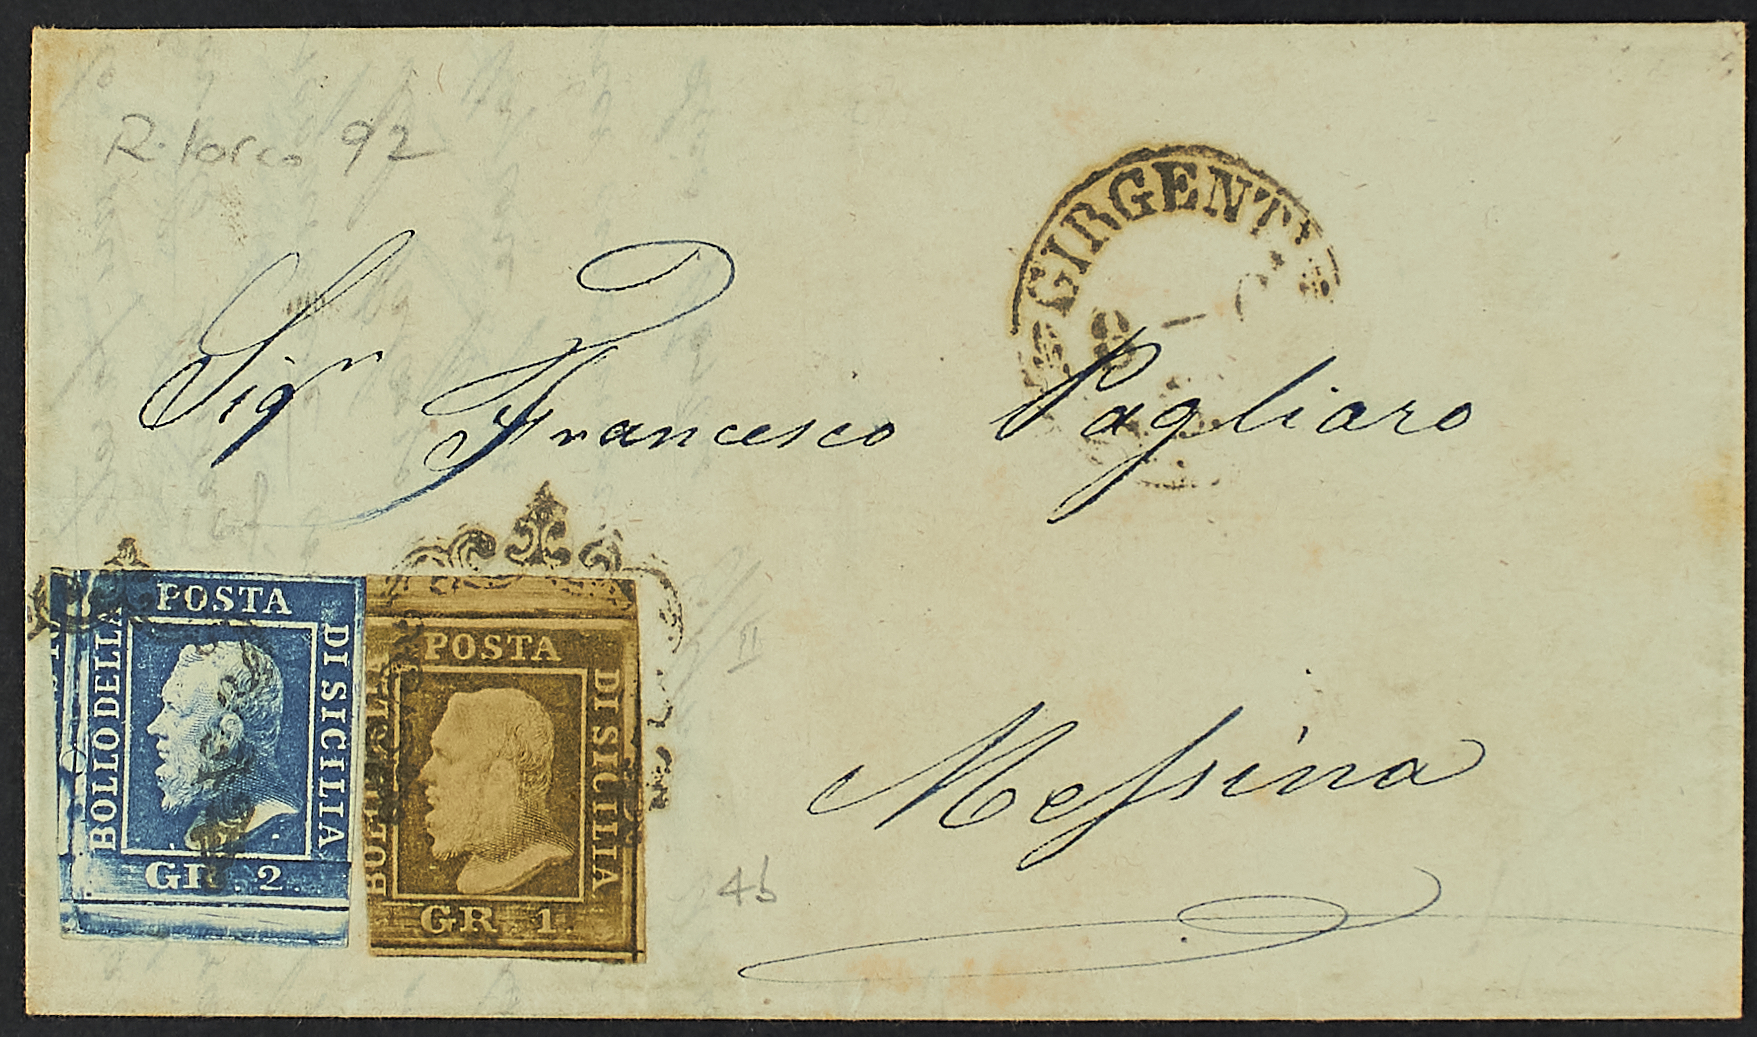 R. torco 92
GIRGENTI
8
Sigr Francesco Pagliaro
Messina
POSTA
BOLLO DELLA
DI SICILIA
GR. 2.
POSTA
BOLLO DELLA
DI SICILIA
GR. 1.
II
4b